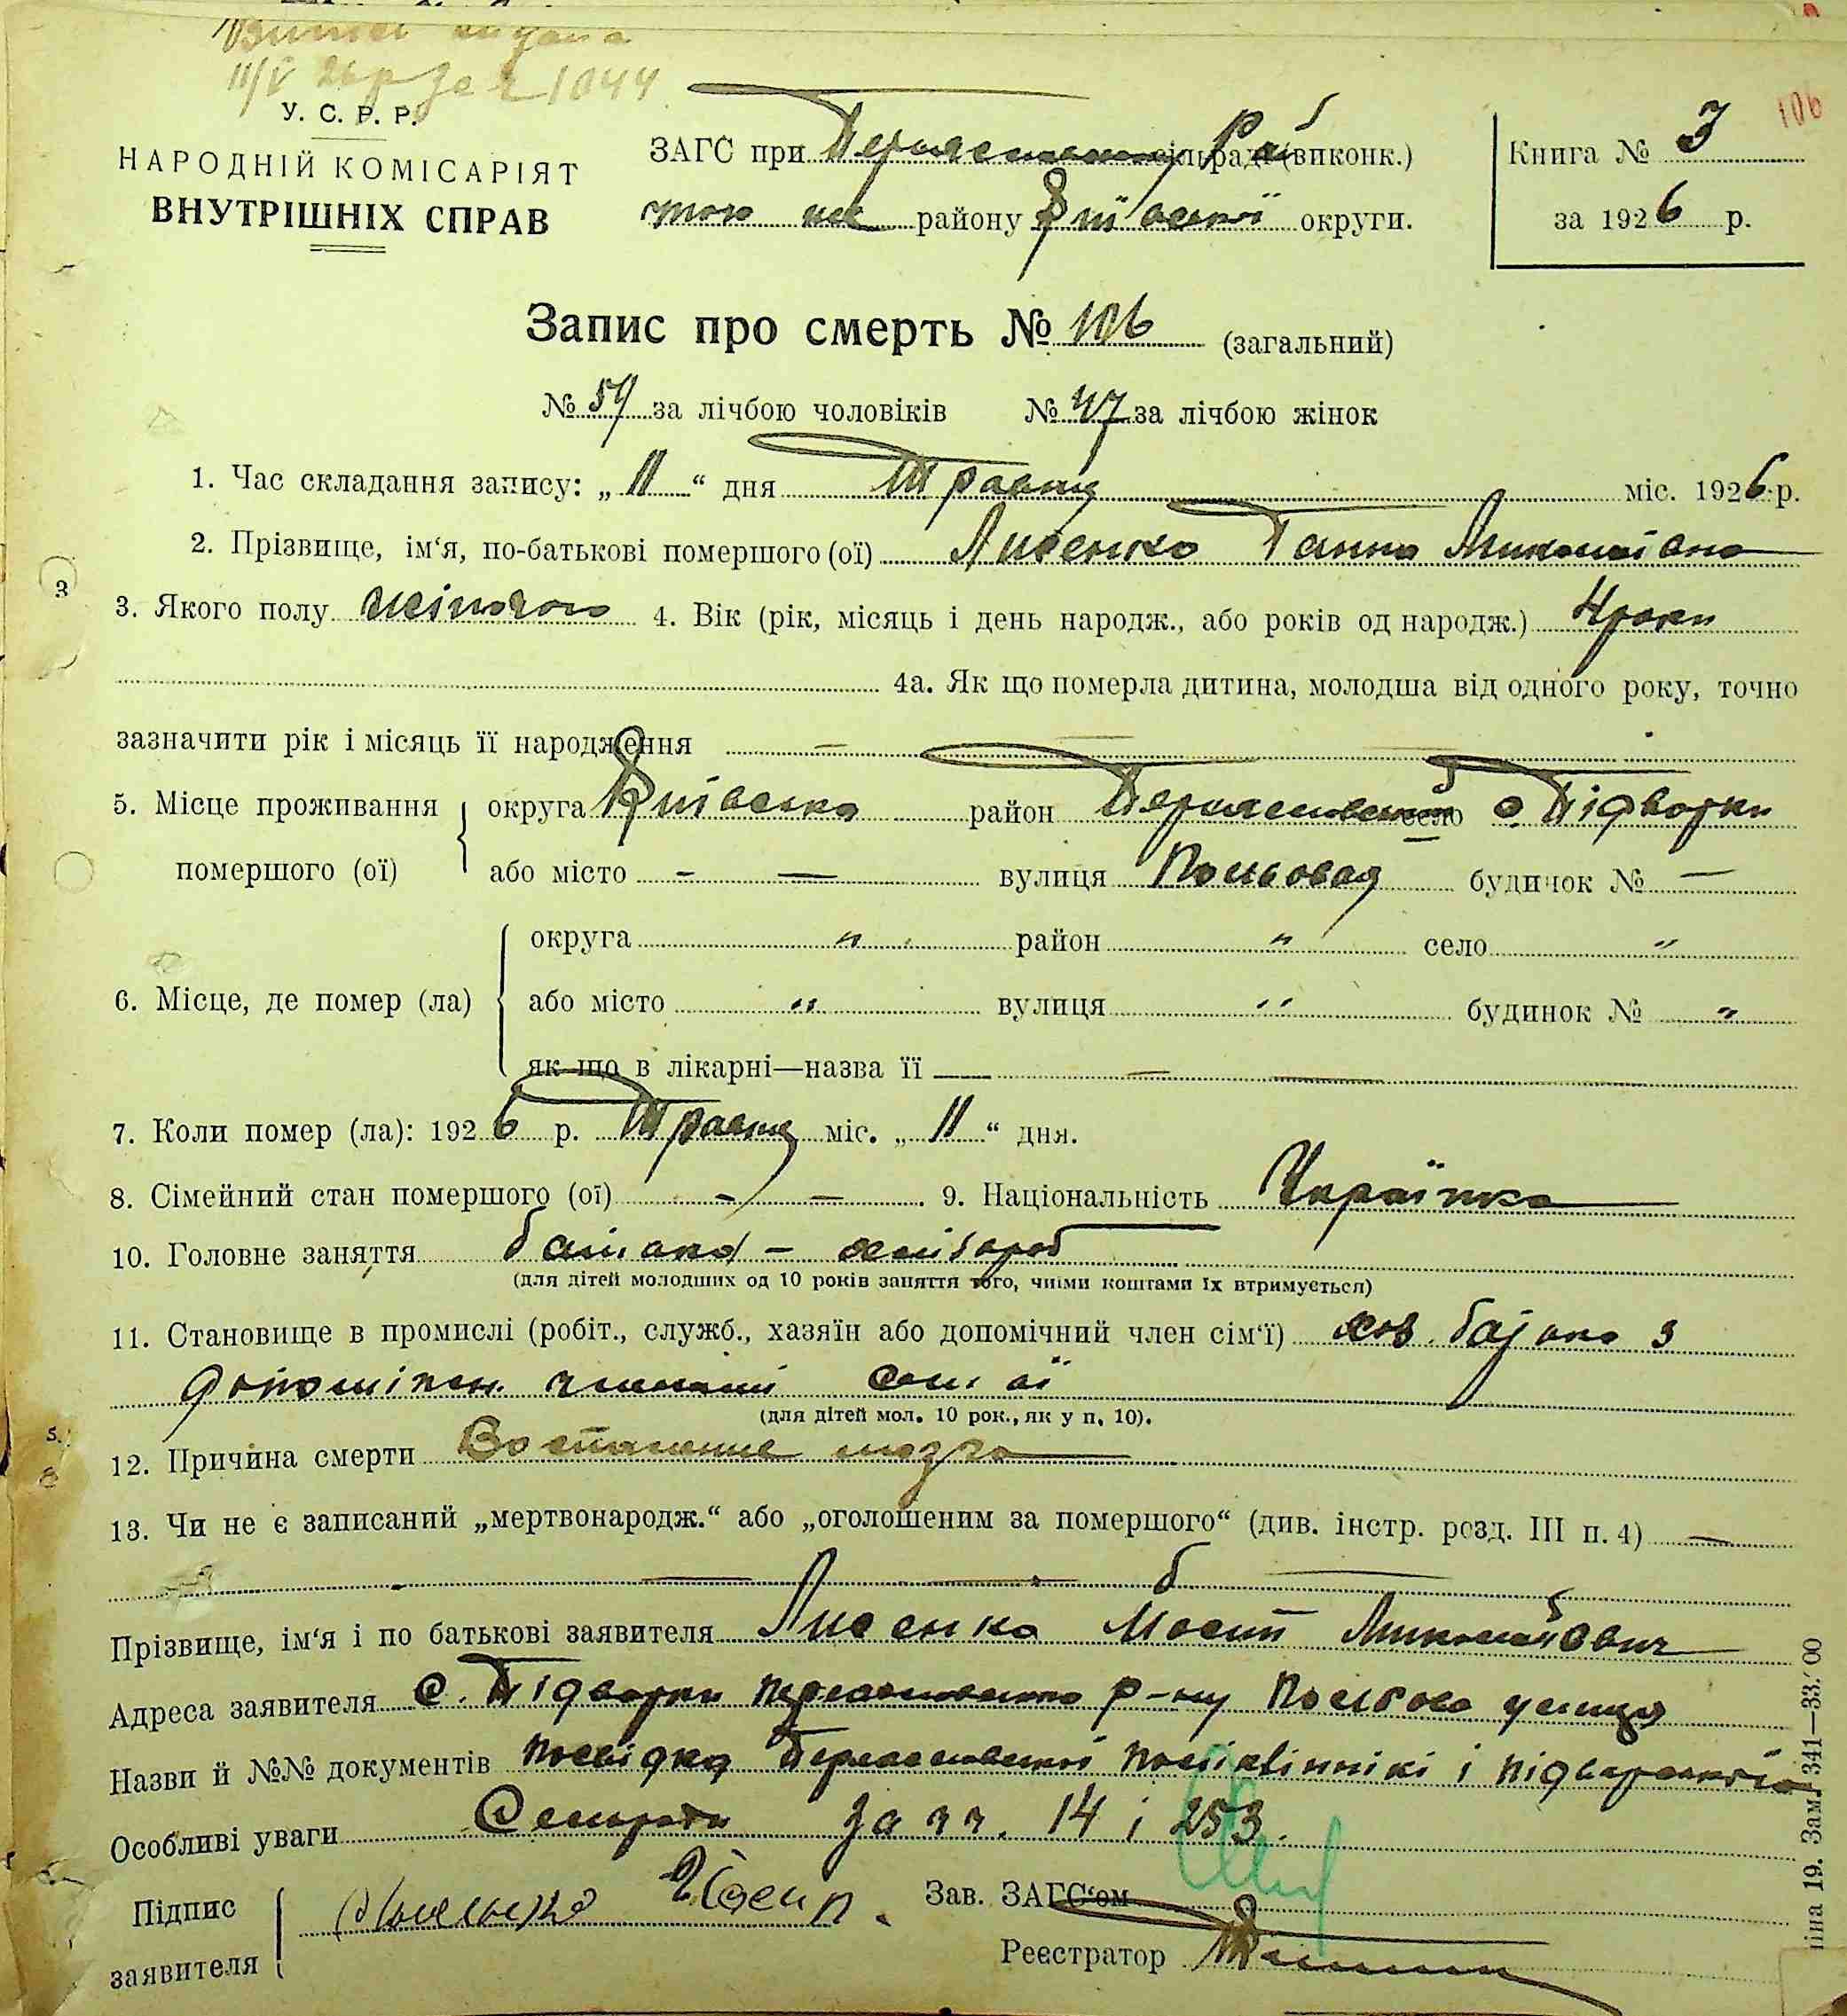 11/V 26 р за № 1044
106
У. С. Р. Р.
НАРОДНІЙ КОМІСАРІЯТ
ВНУТРІШНІХ СПРАВ
ЗАГС при Переяславському Рай сільраді (виконк.)
району Київської округи.
Книга № 3
за 1926 р.
Запис про смерть № 106 (загальний)
№ 59 за лічбою чоловіків № 47 за лічбою жінок
1. Час складання запису: „ 11 “ дня Травня міс. 1926 р.
2. Прізвище, ім‘я, по-батькові помершого (ої) Лисенко Ганна Миколаївна
3. Якого полу жіночого 4. Вік (рік, місяць і день народж., або років од народж.) 4 роки
4а. Як що померла дитина, молодша від одного року, точно
зазначити рік і місяць її народження —
5. Місце проживання помершого (ої) округа Київська район Переяславський село с. Підворки
або місто - — вулиця Польовая будинок № —
6. Місце, де помер (ла) округа " район " село "
або місто " вулиця " будинок № "
як що в лікарні—назва її —
7. Коли помер (ла): 1926 р. Травня міс. „ 11 “ дня.
8. Сімейний стан помершого (ої) - — 9. Національність Українка
10. Головне заняття батька - хлібороб
(для дітей молодших од 10 років заняття того, чиїми коштами їх втримується)
11. Становище в промислі (робіт., служб., хазяїн або допомічний член сім‘ї) з
допоміжн. членами сем'ї
(для дітей мол. 10 рок., як у п. 10).
12. Причина смерти Воспаление мозга
13. Чи не є записаний „мертвонародж.“ або „оголошеним за помершого“ (див. інстр. розд. III п. 4) —
Прізвище, ім‘я і по батькові заявителя Лисенко Йосип Миколайович
Адреса заявителя с. Підворки Переяславського р-ну Польова улиця
Назви й №№ документів посвідка Переяславської поліклініки і підворської
Особливі уваги Сельради за чч. 14 і 253.
Підпис заявителя Лисенко Йосип.
Зав. ЗАГС‘ом
Реєстратор
іна 19. Зам. 341—33.00